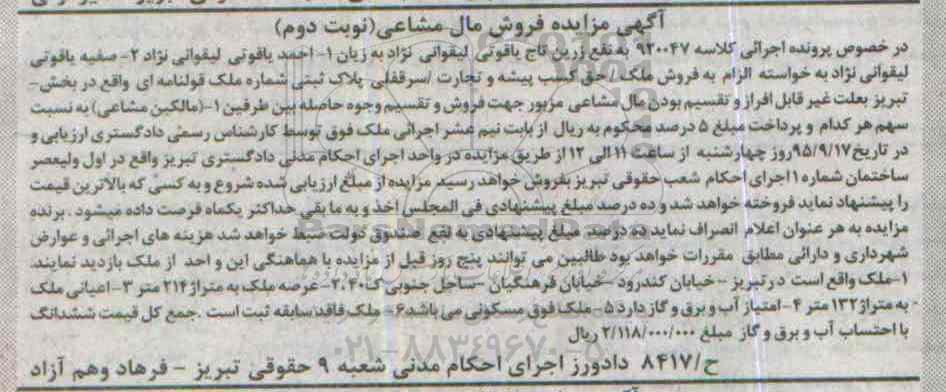 آگهی مزایده فروش مال مشاعی(نوبت دوم)
در خصوص پرونده اجرائی کلاسه ۹۲۰۰۴۷ به نفع زرین تاج یاقوتی لیقوانی نژاد به زیان ۱- احمد یاقوتی لیقوانی نژاد ۲- صفیه یاقوتی
لیقوانی نژاد به خواسته الزام به فروش ملک / حق کسب پیشه و تجارت /سرقفلی پلاک ثبتی شماره ملک قولنامه ای واقع در بخش-
تبریز بعلت غیر قابل افراز و تقسیم بودن مال مشاعی مزبور جهت فروش و تقسیم وجوه حاصله بین طرفین ۱-(مالکین مشاعی) به نسبت
سهم هر کدام و پرداخت مبلغ ۵ درصد محکوم به ریال از بابت نیم عشر اجرائی ملک فوق توسط کارشناس رسمی دادگستری ارزیابی و
در تاریخ ۹۵/۹/۱۷ روز چهارشنبه از ساعت ۱۱ الی ۱۲ از طریق مزایده در واحد اجرای احکام مدنی دادگستری تبریز واقع در اول ولیعصر
ساختمان شماره ۱ اجرای احکام شعب حقوقی تبریز بفروش خواهد رسید مزایده از مبلغ ارزیابی شده شروع و به کسی که بالاترین قیمت
را پیشنهاد نماید فروخته خواهد شد و ده درصد مبلغ پیشنهادی فی المجلس اخذ و به ما بقی حداکثر یکماه فرصت داده میشود . برنده
مزایده به هر عنوان اعلام انصراف نماید ده درصد مبلغ پیشنهادی به نفع صندوق دولت ضبط خواهد شد هزینه های اجرائی و عوارض
شهرداری و دارائی مطابق مقررات خواهد بود طالبین می توانند پنج روز قبل از مزایده با هماهنگی این واحد از ملک بازدید نمایند.
۱-ملک واقع است در تبریز - خیابان کندرود -خیابان فرهنگیان -ساحل جنوبی ک۲،۴۰-عرصه ملک به متراژ ۲۱۴ متر ۳-اعیانی ملک
به متراژ ۱۳۲ متر ۴-امتیاز آب و برق و گاز دارد ۵-ملک فوق مسکونی می باشد ۶- ملک فاقد سابقه ثبت است .جمع کل قیمت ششدانگ
با احتساب آب و برق و گاز مبلغ ۲/۱۱۸/۰۰۰/۰۰۰ ریال
ح/۸۴۱۷ دادورز اجرای احکام مدنی شعبه ۹ حقوقی تبریز - فرهاد وهم آزاد
۰۲۱-۸۸۳۴۹۶۷۰-۵